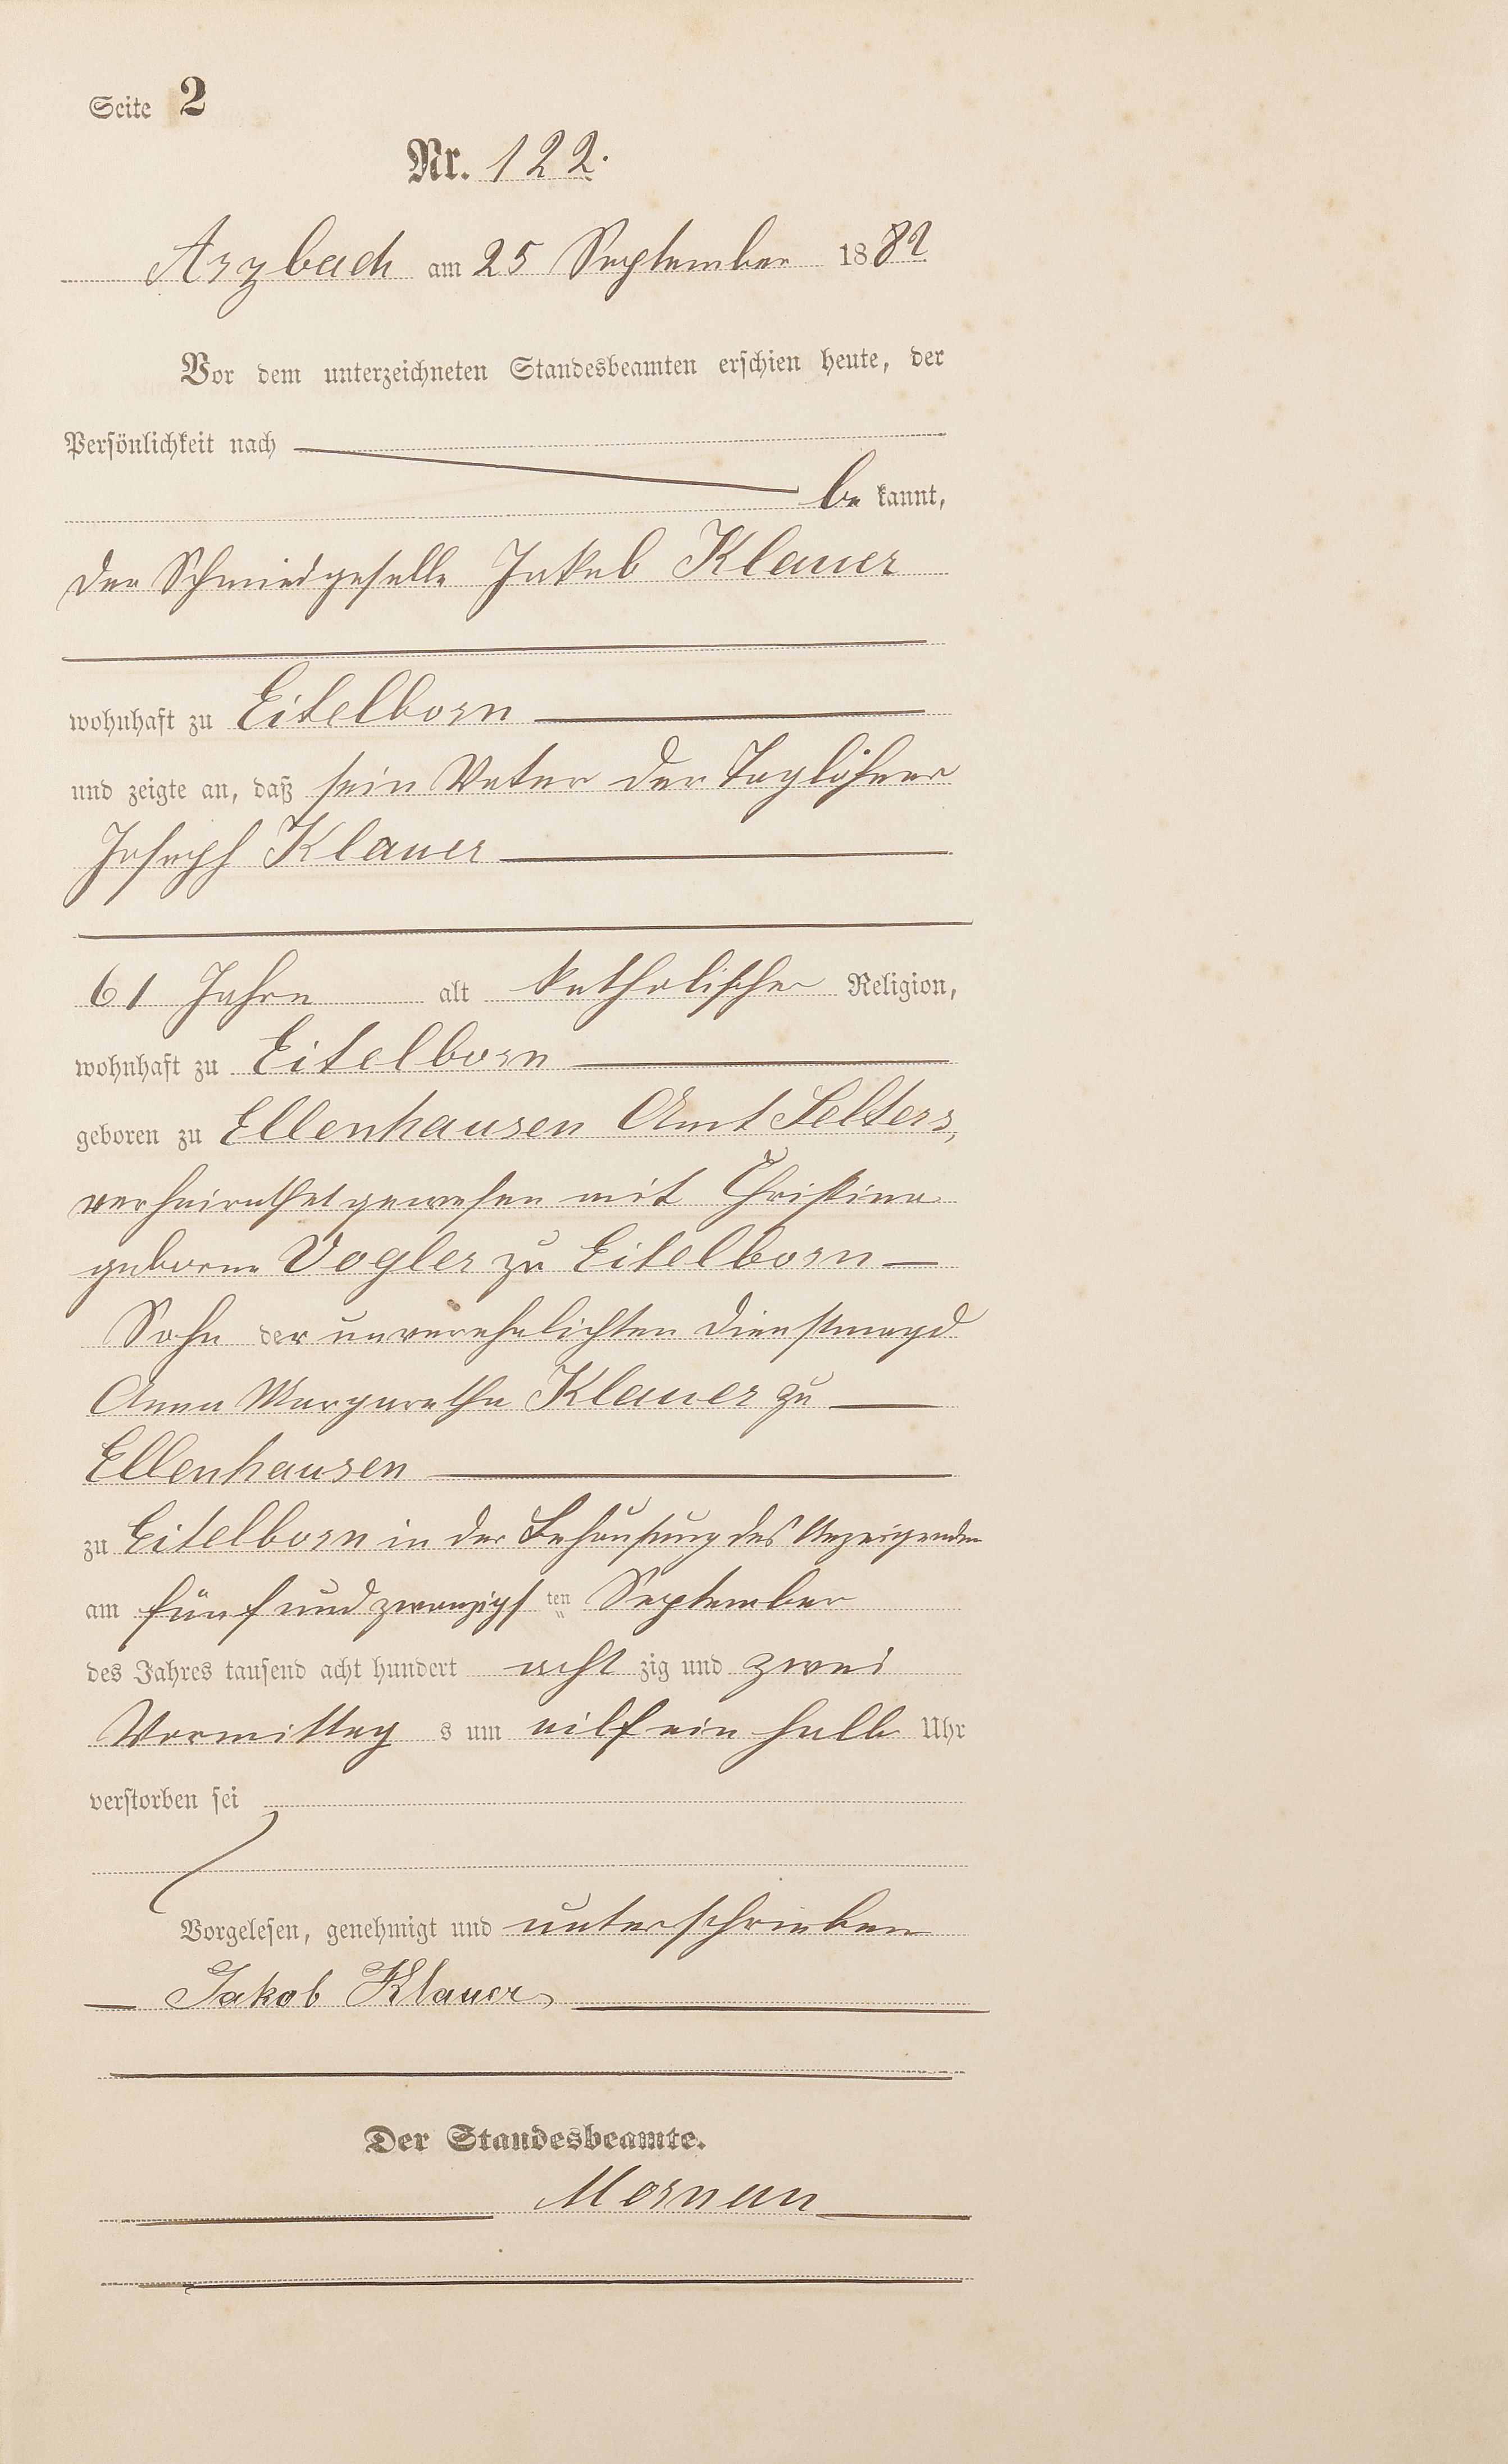 Seite 2
Nr. 122.
Arzbach am 25 September 1882
Vor dem unterzeichneten Standesbeamten erschien heute, der
Persönlichkeit nach
be kannt,
der Schmiedgeselle Jakob Klauer
wohnhaft zu Eitelborn
und zeigte an, daß sein Vater der Taglöhner
Joseph Klauer
61 Jahre alt katholischer Religion,
wohnhaft zu Eitelborn
geboren zu Ellenhausen Amt Selters,
verheirathet gewesen mit Christina
geborne Vogler zu Eitelborn
Sohn der unverehelichten Dienstmagd
Anna Margaretha Klauer zu
Ellenhausen
zu Eitelborn in der Behausung des Anzeigenden
am fünf und zwanzigs ten September
des Jahres tausend acht hundert acht zig und zwei
Vormittag s um eilf ein halb Uhr
verstorben sei
Vorgelesen, genehmigt und unterschrieben
Jakob Klauer
Der Standesbeamte.